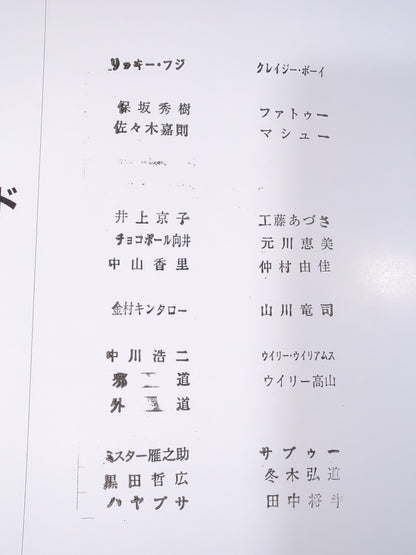 ド
リッキー・フジ クレイジー・ボーイ
保坂秀樹 ファトゥー
佐々木嘉則 マシュー
井上京子 工藤あづさ
チョコボール向井 元川恵美
中山香里 仲村由佳
金村キンタロー 山川竜司
中川浩二 ウイリー・ウイリアムス
邪道 ウイリー高山
外道
ミスター雁之助 サブゥー
黒田哲広 冬木弘道
ハヤブサ 田中将斗